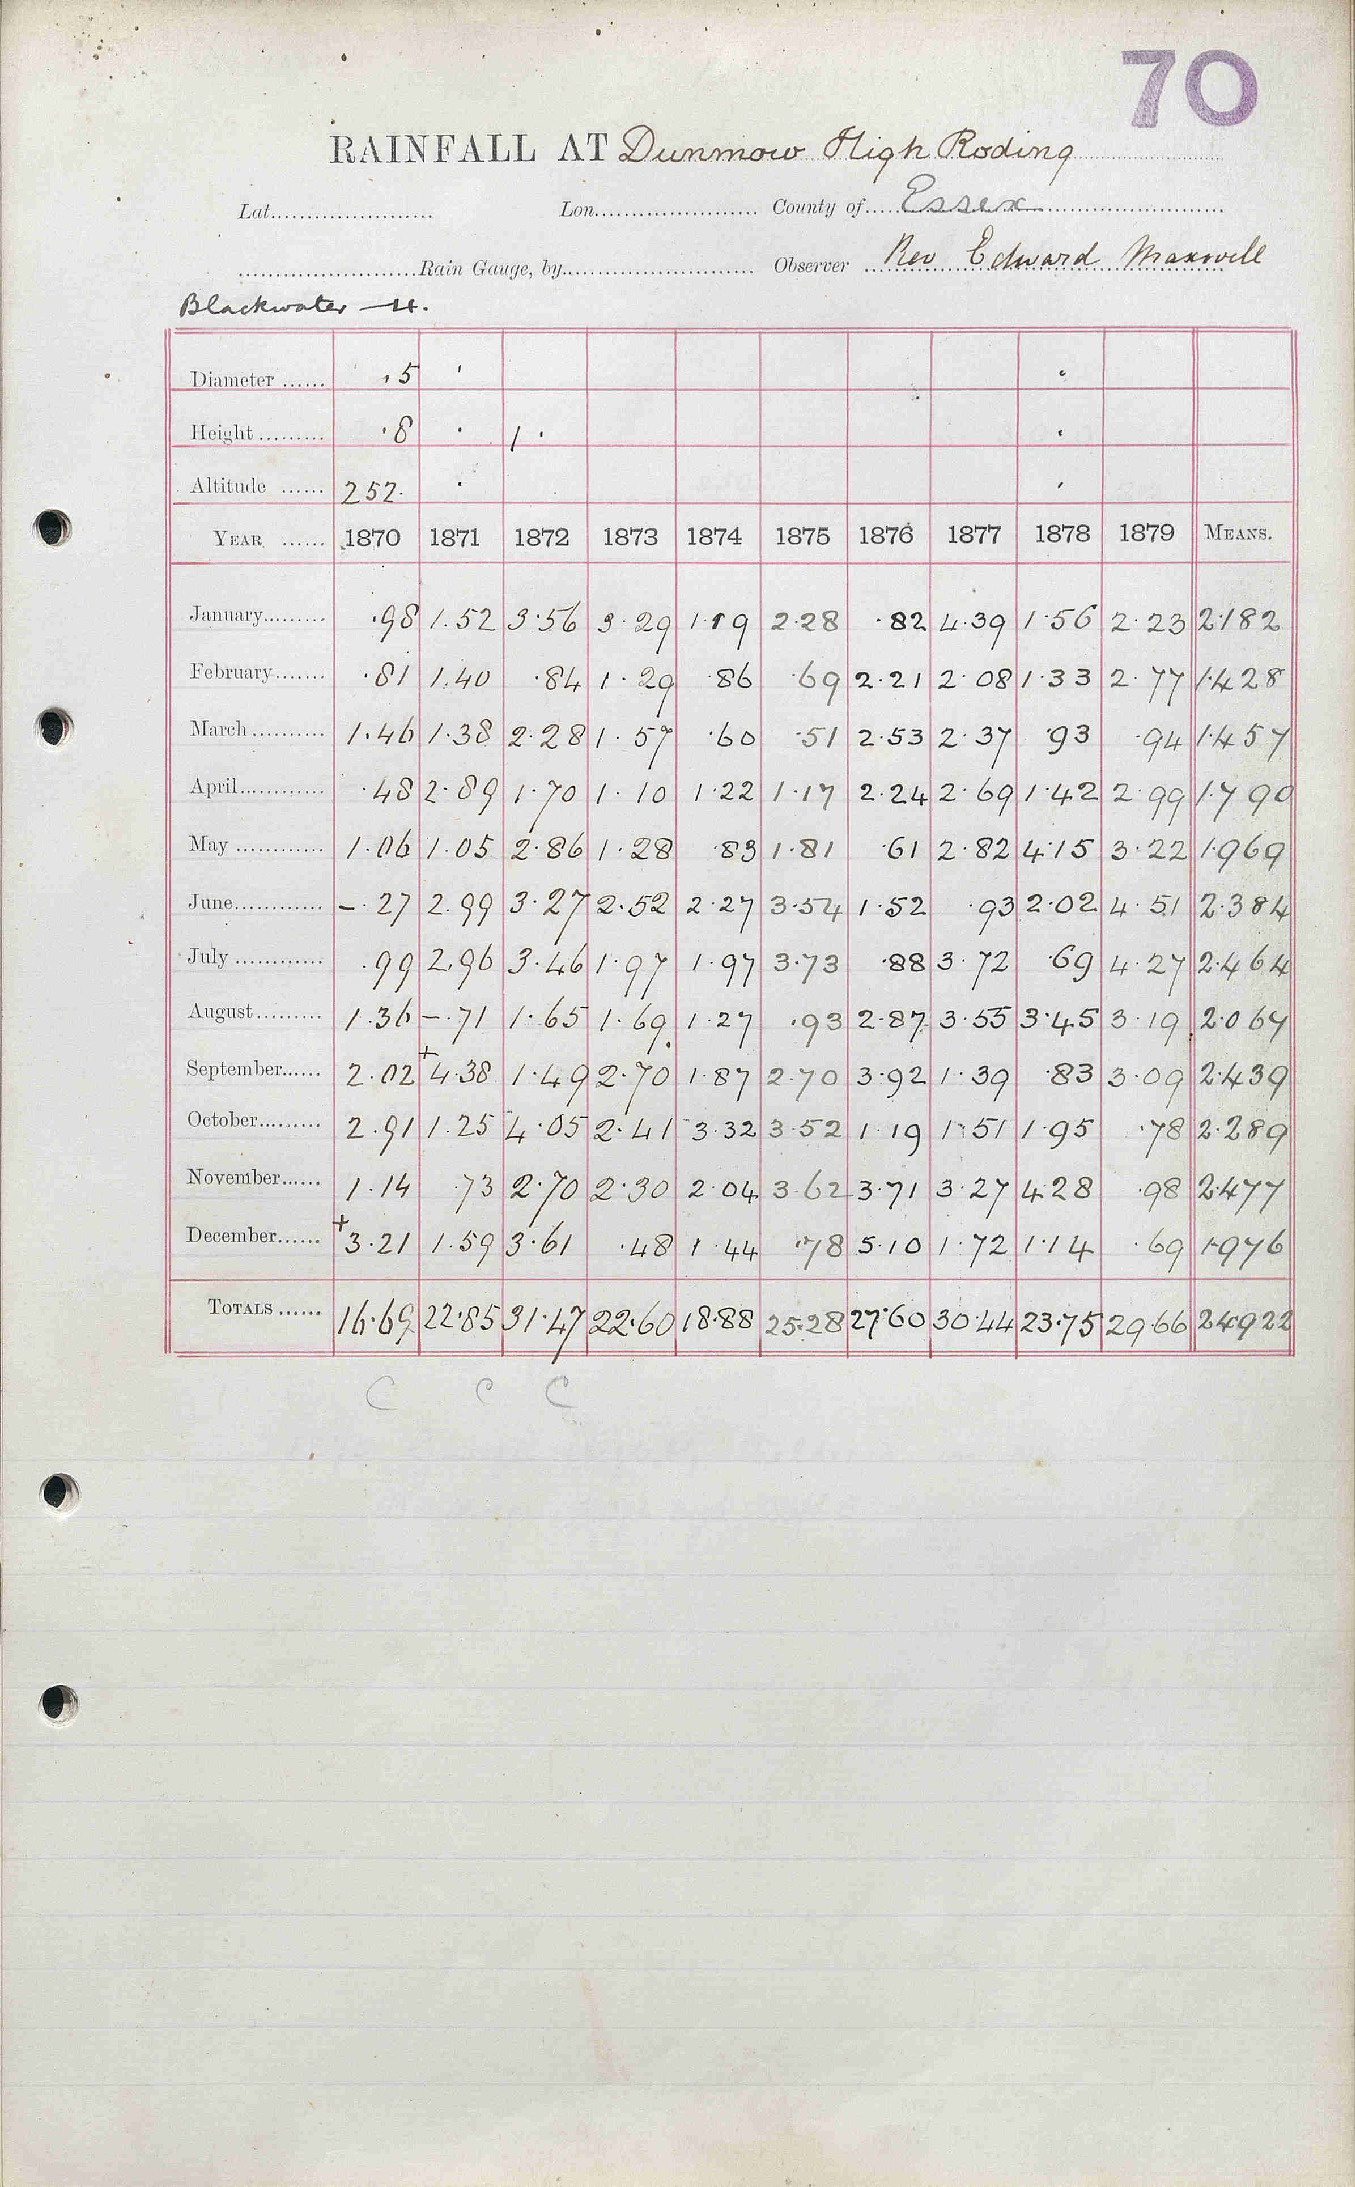 70
RAINFALL AT Dunmow High Roding
Lat. Lon. County of Essex
Rain Gauge, by Observer Rev Edward Maxwell
Blackwater — 4.
Diameter ...... .5
Height ......... .8 · 1 ·
Altitude ...... 252.
YEAR ...... 1870 1871 1872 1873 1874 1875 1876 1877 1878 1879 MEANS.
January......... .98 1.52 3.56 3.29 1.19 2.28 .82 4.39 1.56 2.23 2.182
February....... .81 1.40 .84 1.29 .86 .69 2.21 2.08 1.33 2.77 1.428
March .......... 1.46 1.38 2.28 1.57 .60 .51 2.53 2.37 .93 .94 1.457
April............ .48 2.89 1.70 1.10 1.22 1.17 2.24 2.69 1.42 2.99 1.790
May ............ 1.06 1.05 2.86 1.28 .83 1.81 .61 2.82 4.15 3.22 1.969
June............ -.27 2.99 3.27 2.52 2.27 3.54 1.52 .93 2.02 4.51 2.384
July ............ .99 2.96 3.46 1.97 1.97 3.73 .88 3.72 .69 4.27 2.464
August......... 1.36 -.71 1.65 1.69 1.27 .93 2.87 3.55 3.45 3.19 2.067
September...... 2.02 +4.38 1.49 2.70 1.87 2.70 3.92 1.39 .83 3.09 2.439
October......... 2.91 1.25 4.05 2.41 3.32 3.52 1.19 1.51 1.95 .78 2.289
November...... 1.14 .73 2.70 2.30 2.04 3.62 3.71 3.27 4.28 .98 2.477
December...... +3.21 1.59 3.61 .48 1.44 .78 5.10 1.72 1.14 .69 1.976
TOTALS ...... 16.69 22.85 31.47 22.60 18.88 25.28 27.60 30.44 23.75 29.66 24.922
C C C